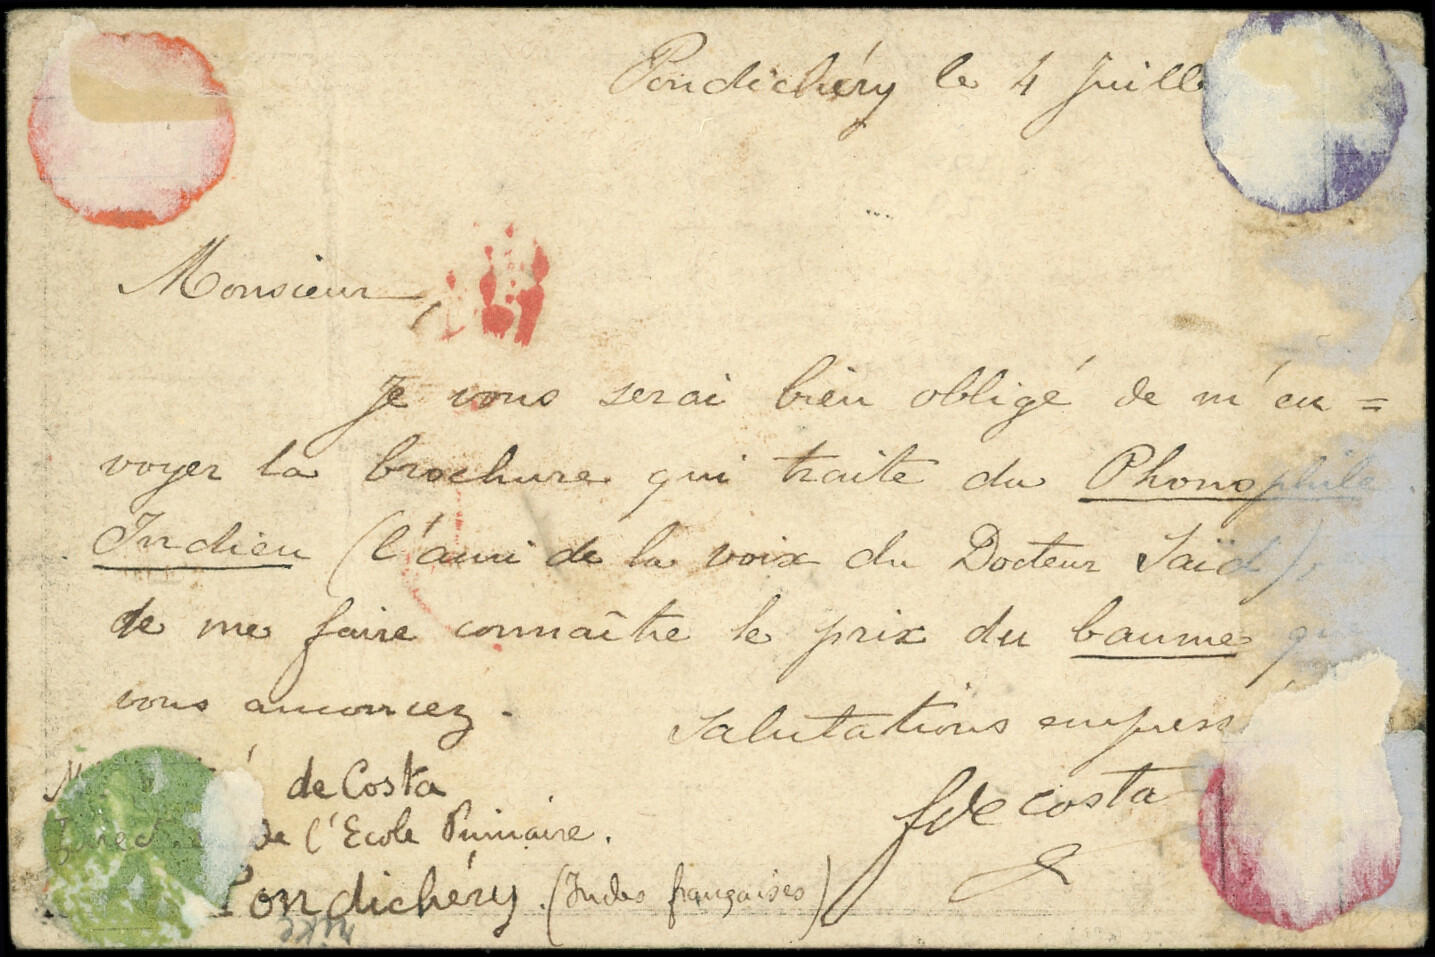 Pondichéry le 4 Juill
Monsieur,
Je vous serai bien obligé de m'en=
voyer la brochure qui traite du Phonophile
Indien (l'ami de la voix du Docteur Saïd),
de me faire connaître le prix du baume que
vous annoncez.
Salutations empress
de Costa
de l'Ecole Primaire.
f de costa
Pondichéry. (Indes françaises)